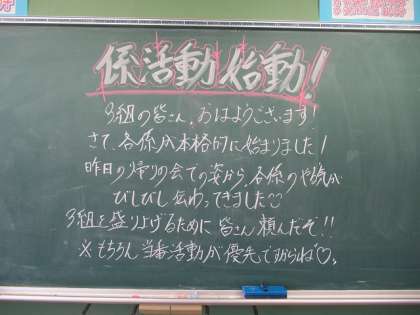 係活動始動！
3組の皆さん、おはようございます！
さて、各係が本格的に始まりました！
昨日の帰りの会での姿から、各係のやる気が
びしびし伝わってきました
3組を盛り上げるために皆さん頼んだぞ!!
※もちろん当番活動が優先ですからね♡。